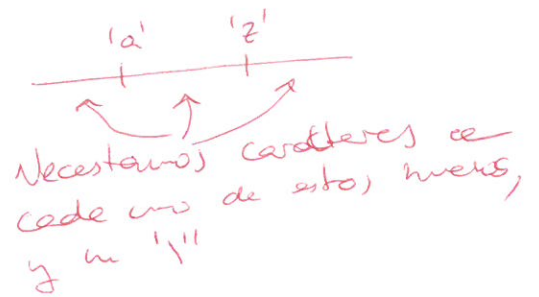 'a' 'z'
Necesitamos caracteres de
cada uno de estos
y un '\'